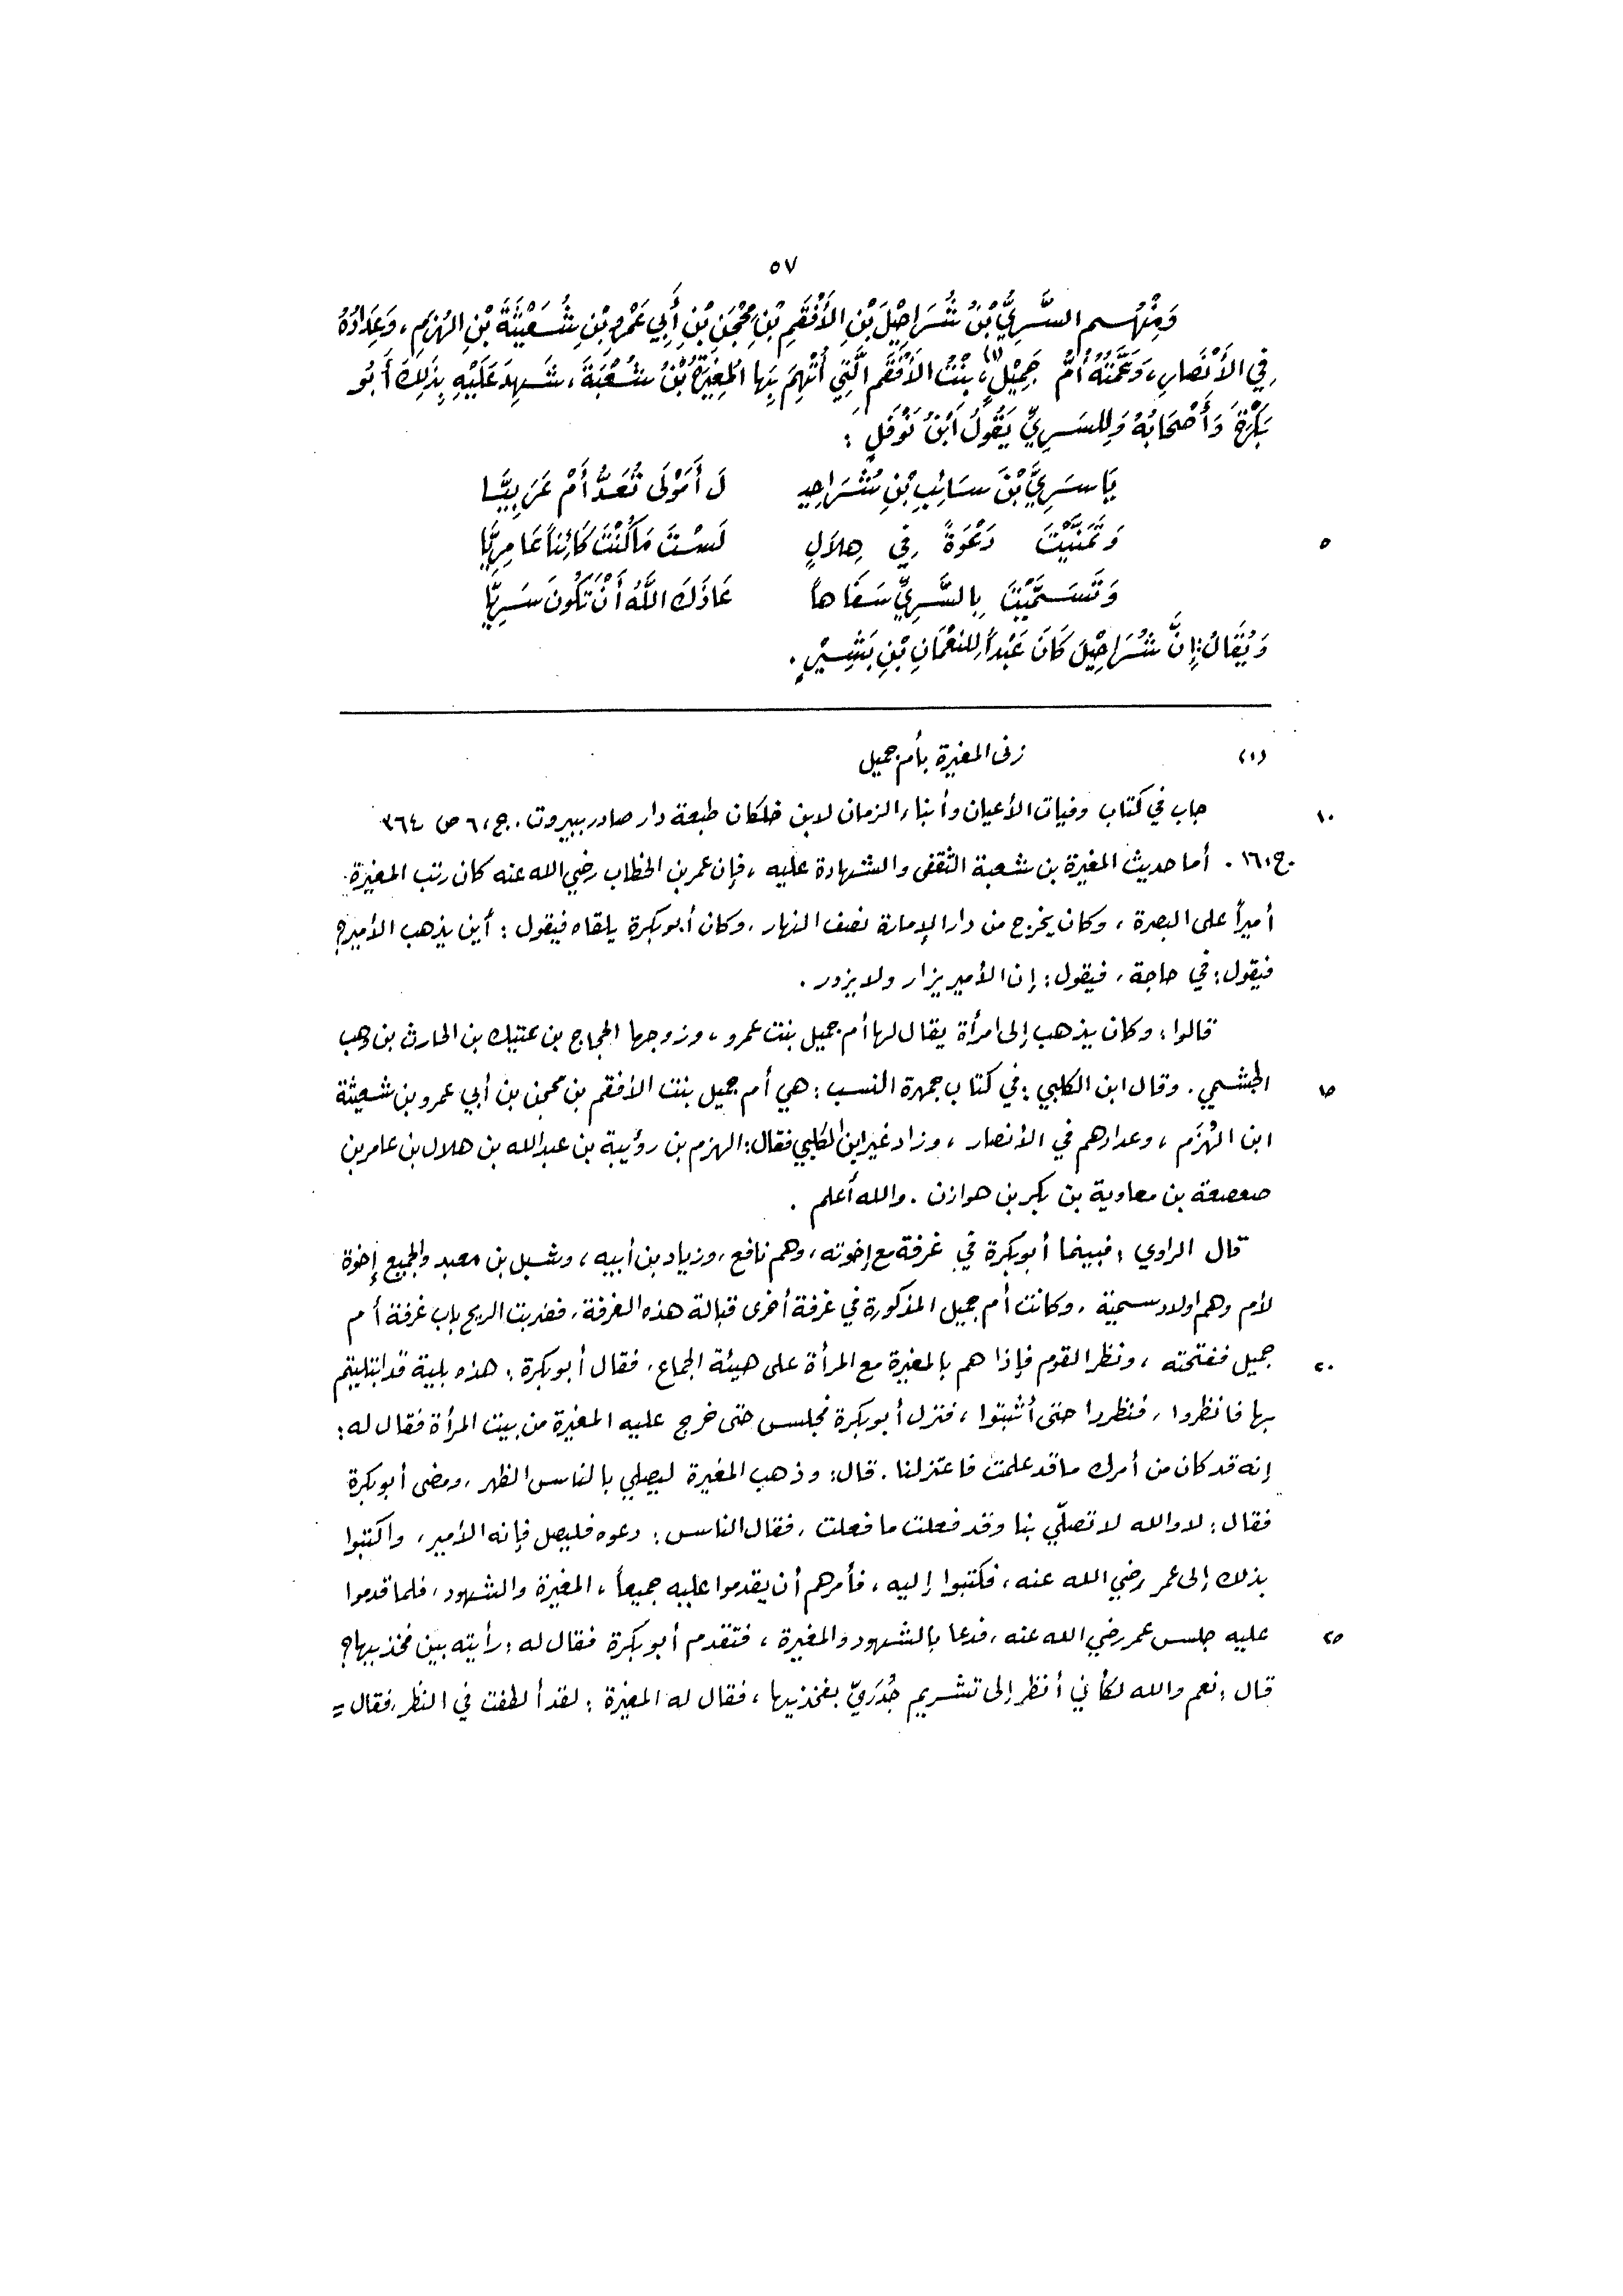 ٥٧
وَمِنْهُم السَّرِيُّ بْنُ شُرَاحِيْلَ بْنِ الأَفْقَمِ بْنِ مِحْجَنِ بْنِ أَبِي عَمْرِو بْنِ شُعَيْثَةَ بْنِ الهُزَمِ، وَعِدَادُهُ
فِي الأَنْصَارِ، وَعَمَّتُهُ أُمُّ جَمِيْلٍ (١)، بِنْتُ الأَفْقَمِ الَّتِي أُتُّهِمَ بِهَا المُغِيْرَةُ بْنُ شُعْبَةَ، شَهِدَ عَلَيْهِ بِذَلِكَ أَبُو
بَكْرَةَ وَأَصْحَابُهُ وَلِلسَرِيِّ يَقُولُ أبْنُ نَوْفَلٍ :
يَا سَرِيَّ بْنَ سَائِبِ بْنِ شُرَاحِيـ لَ أَمَوْلَى تُعَدُّ أَمْ عَرَبِيَّا
وَتَمَنَّيْتَ دَعْوَةً فِي هِلَالٍ لَسْتَ مَا كُنْتَ كَائِناً عَامِرِيَّا
٥
وَتَسَمَّيْتَ بِالسَّرِيِّ سَفَاهاً عَاذَكَ اللَّهُ أَنْ تَكُونَ سَرِيَّا
وَيُقَالُ: إِنَّ شُرَاحِيْلَ كَانَ عَبْداً لِلنُعْمَانِ بْنِ بَشِيْرٍ .
(١) زنى المغيرة بأم جميل
١٠ جاب في كتاب وفيات الأعيان وأنباء الزمان لابن خلكان طبعة دار صادر ببيروت . ج ، ٦ ص ٣٦٤
ج ، ١٦ . أما حديث المغيرة بن شعبة الثقفي والشهادة عليه ، فإن عمر بن الخطاب رضي الله عنه كان رتب المغيرة
أميراً على البصرة ، وكان يخرج من دار الإمارة نصف النهار ، وكان أبو بكرة يلقاه فيقول : أين يذهب الأمير؟
فيقول : في حاجة ، فيقول : إن الأمير يزار ولا يزور .
قالوا : وكان يذهب إلى امرأة يقال لها أم جميل بنت عمرو ، وزوجها الحجاج بن عتيك بن الحارث بن وهب
١٥ الجشمي . وقال ابن الكلبي : في كتاب جمهرة النسب : هي أم جميل بنت الأفقم بن محجن بن أبي عمرو بن شعيثة
ابن الهُزَم ، وعدادهم في الأنصار ، وزاد غير ابن الكلبي فقال : الهزم بن رؤيبة بن عبدالله بن هلال بن عامر بن
صعصعة بن معاوية بن بكر بن هوازن . والله أعلم .
قال الراوي : فبينما أبو بكرة في غرفة مع إخوته ، وهم نافع ، وزياد بن أبيه ، وشبل بن معبد والجميع إخوة
لأم وهم اولاد سمية ، وكانت أم جميل المذكورة في غرفة أخرى قبالة هذه الغرفة ، فضربت الريح باب غرفة أم
٢٠ جميل ففتحته ، ونظر القوم فإذا هم بالمغيرة مع المرأة على هيئة الجماع ، فقال أبو بكرة : هذه بلية قد ابتليتم
بها فانظروا ، فنظروا حتى أثبتوا ، فنزل أبو بكرة فجلس حتى خرج عليه المغيرة من بيت المرأة فقال له :
إنه قد كان من أمرك ما قد علمت فاعتزلنا . قال : وذهب المغيرة ليصلي بالناس الظهر ، ومضى أبو بكرة
فقال : لا والله لا تصلّي بنا وقد فعلت ما فعلت ، فقال الناس : دعوه فليصل فإنه الأمير ، واكتبوا
بذلك إلى عمر رضي الله عنه ، فكتبوا إليه ، فأمرهم أن يقدموا عليه جميعاً ، المغيرة والشهود ، فلما قدموا
٢٥ عليه جلس عمر رضي الله عنه ، فدعا بالشهود والمغيرة ، فتقدم أبو بكرة فقال له : رأيته بين فخذيها؟
قال : نعم والله لكأني أنظر إلى تشريم جُدَرِيّ بفخذيها ، فقال له المغيرة : لقد ألطفت في النظر ، فقال =